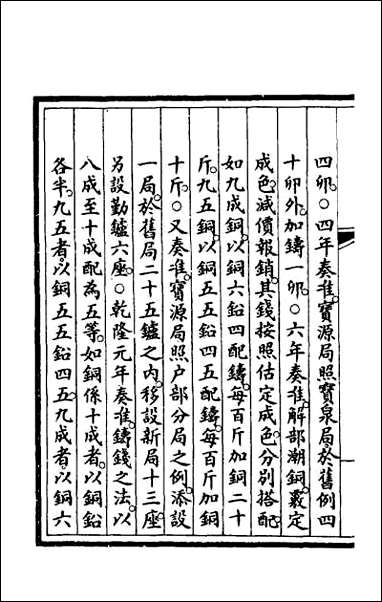 四卯。○四年奏准。寶源局照寶泉局於舊例四
十卯外。加鑄一卯。○六年奏准。解部潮銅。覈定
成色。減價報銷。其錢按照估定成色。分別搭配。
如九成銅。以銅六鉛四配鑄。每百斤加銅二十
斤。九五銅。以銅五五鉛四五配鑄。每百斤加銅
十斤。○又奏准。寶源局照户部分局之例。添設
一局。於舊局二十五鑪之内。移設新局十三座。
另設勤鑪六座。○乾隆元年奏准。鑄錢之法。以
八成至十成配為五等。如銅係十成者。以銅鉛
各半。九五者。以銅五五鉛四五。九成者。以銅六